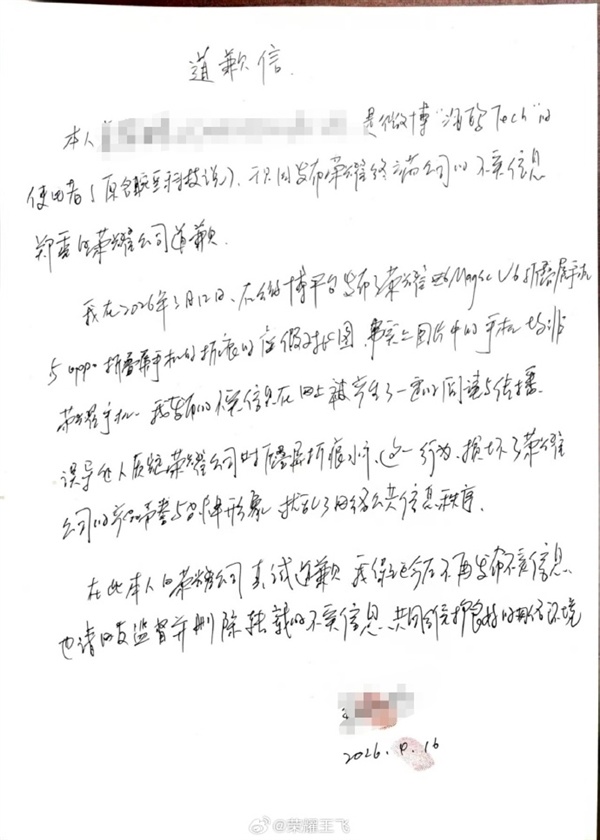 道歉信.
本人 是微博"海酷Tech"的
使用者(原名 科技说),我因发布荣耀终端公司的不实信息
郑重向荣耀公司道歉.
我在2026年3月12日,在微博平台发布了荣耀 Magic V6折叠屏手机
与oppo折叠屏手机的折痕的虚假对比图,事实上图片中的手机均非
荣耀手机.我发布的不实信息在网上被产生了一定的阅读与传播.
误导他人质疑荣耀公司对折叠屏折痕水平,这一行为,损坏了荣耀
公司的产品声誉与品牌形象,扰乱了网络公共信息秩序.
在此本人向荣耀公司真诚道歉,我保证今后不再发布不实信息.
也请网友监督并删除转载的不实信息,共同维护良好的网络环境
2026. .16
@荣耀王飞